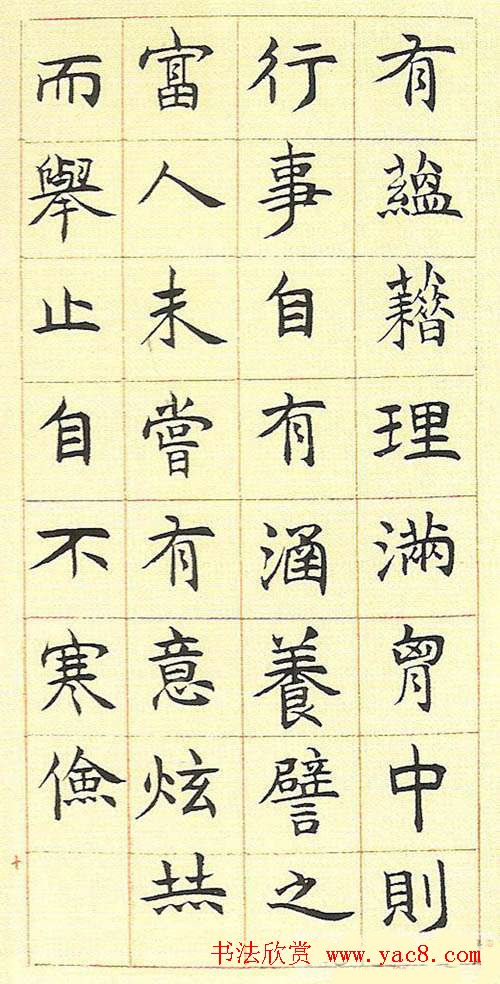 有蘊藉理滿胷中則
行事自有涵養譬之
富人未嘗有意炫
而舉止自不寒儉
书法欣赏 www.yac8.com